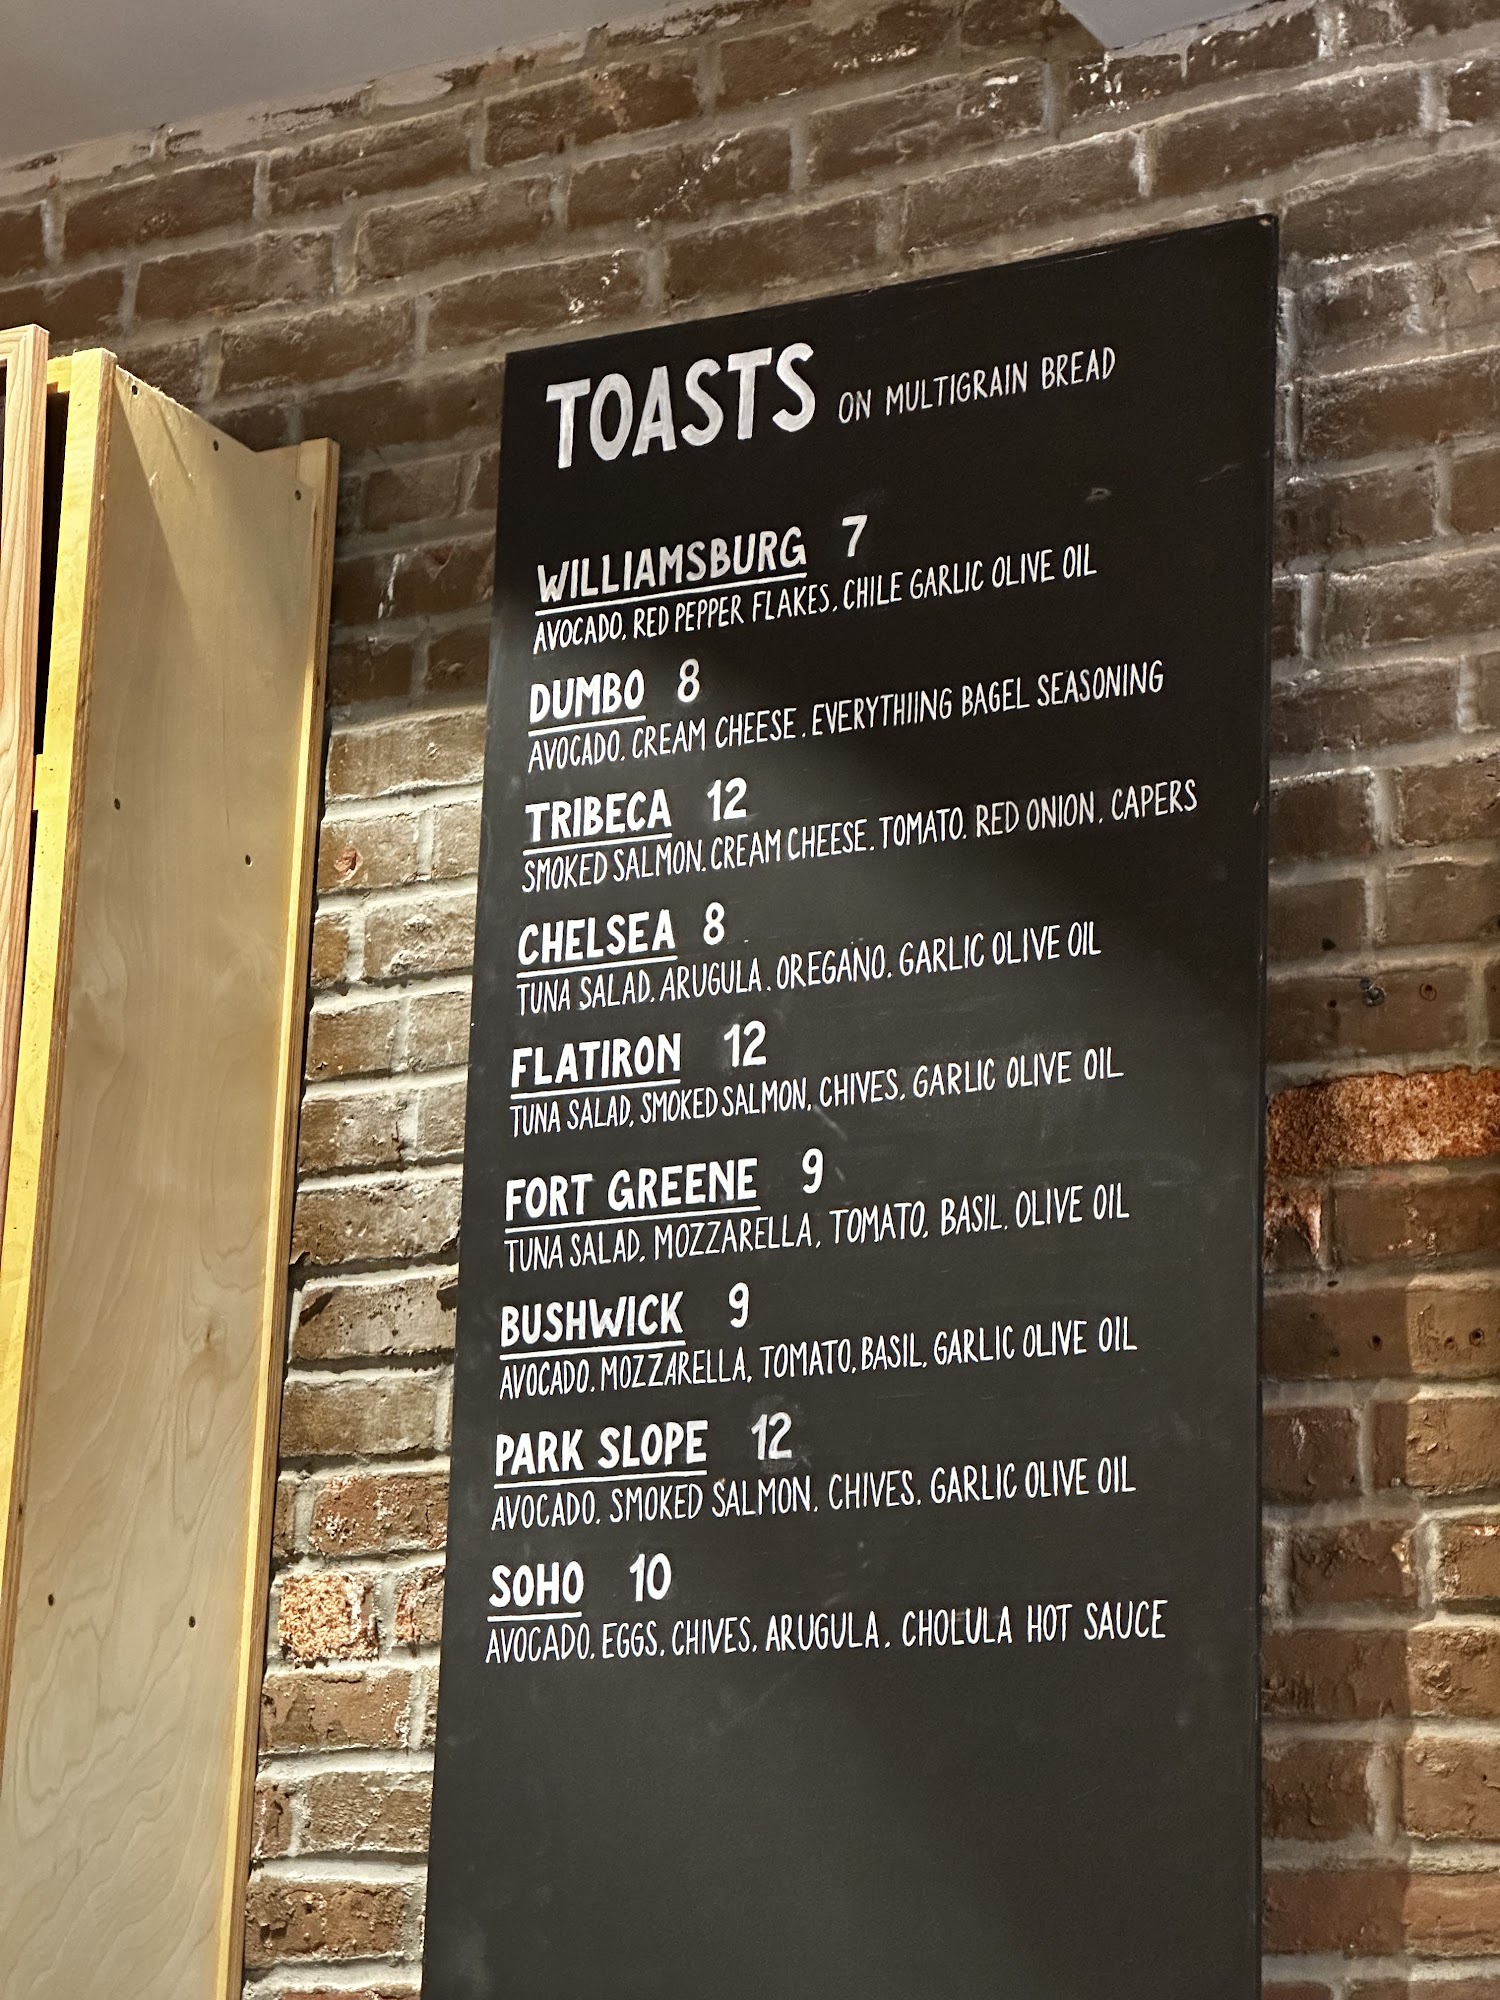 TOASTS ON MULTIGRAIN BREAD
WILLIAMSBURG 7
AVOCADO, RED PEPPER FLAKES, CHILE GARLIC OLIVE OIL
DUMBO 8
AVOCADO, CREAM CHEESE, EVERYTHIING BAGEL SEASONING
TRIBECA 12
SMOKED SALMON, CREAM CHEESE, TOMATO, RED ONION, CAPERS
CHELSEA 8
TUNA SALAD, ARUGULA, OREGANO, GARLIC OLIVE OIL
FLATIRON 12
TUNA SALAD, SMOKED SALMON, CHIVES, GARLIC OLIVE OIL
FORT GREENE 9
TUNA SALAD, MOZZARELLA, TOMATO, BASIL, OLIVE OIL
BUSHWICK 9
AVOCADO, MOZZARELLA, TOMATO, BASIL, GARLIC OLIVE OIL
PARK SLOPE 12
AVOCADO, SMOKED SALMON, CHIVES, GARLIC OLIVE OIL
SOHO 10
AVOCADO, EGGS, CHIVES, ARUGULA, CHOLULA HOT SAUCE